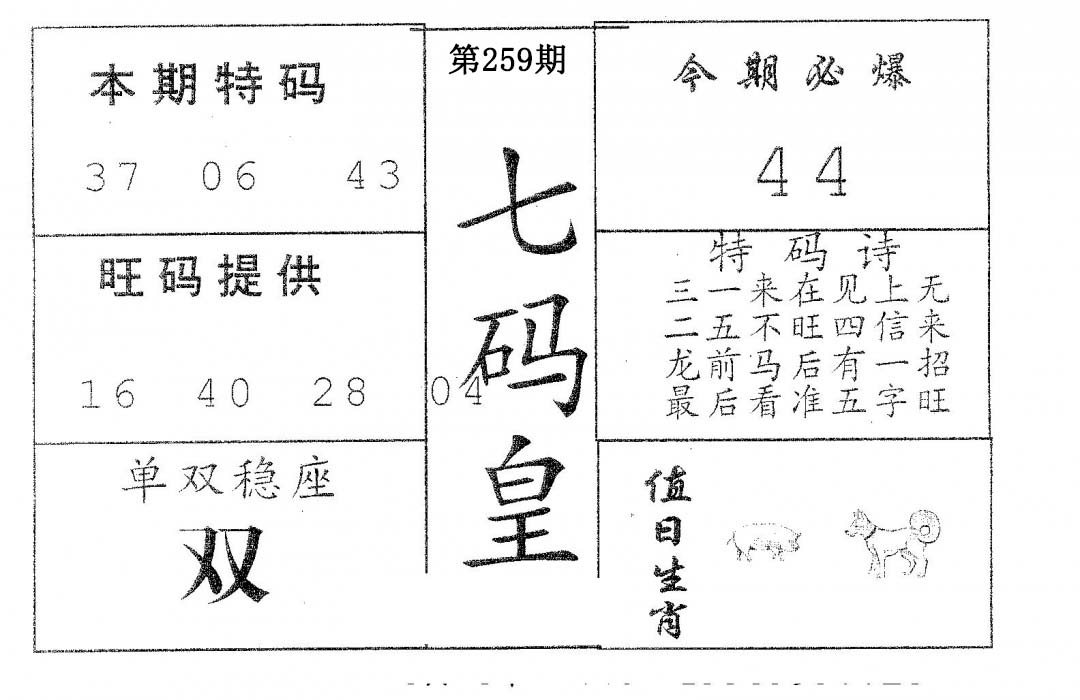 第259期
七码皇
本期特码
37 06 43
旺码提供
16 40 28 04
单双稳座
双
今期必爆
44
特码诗
三一来在见上无
二五不旺四信来
龙前马后有一招
最后看准五字旺
值日生肖